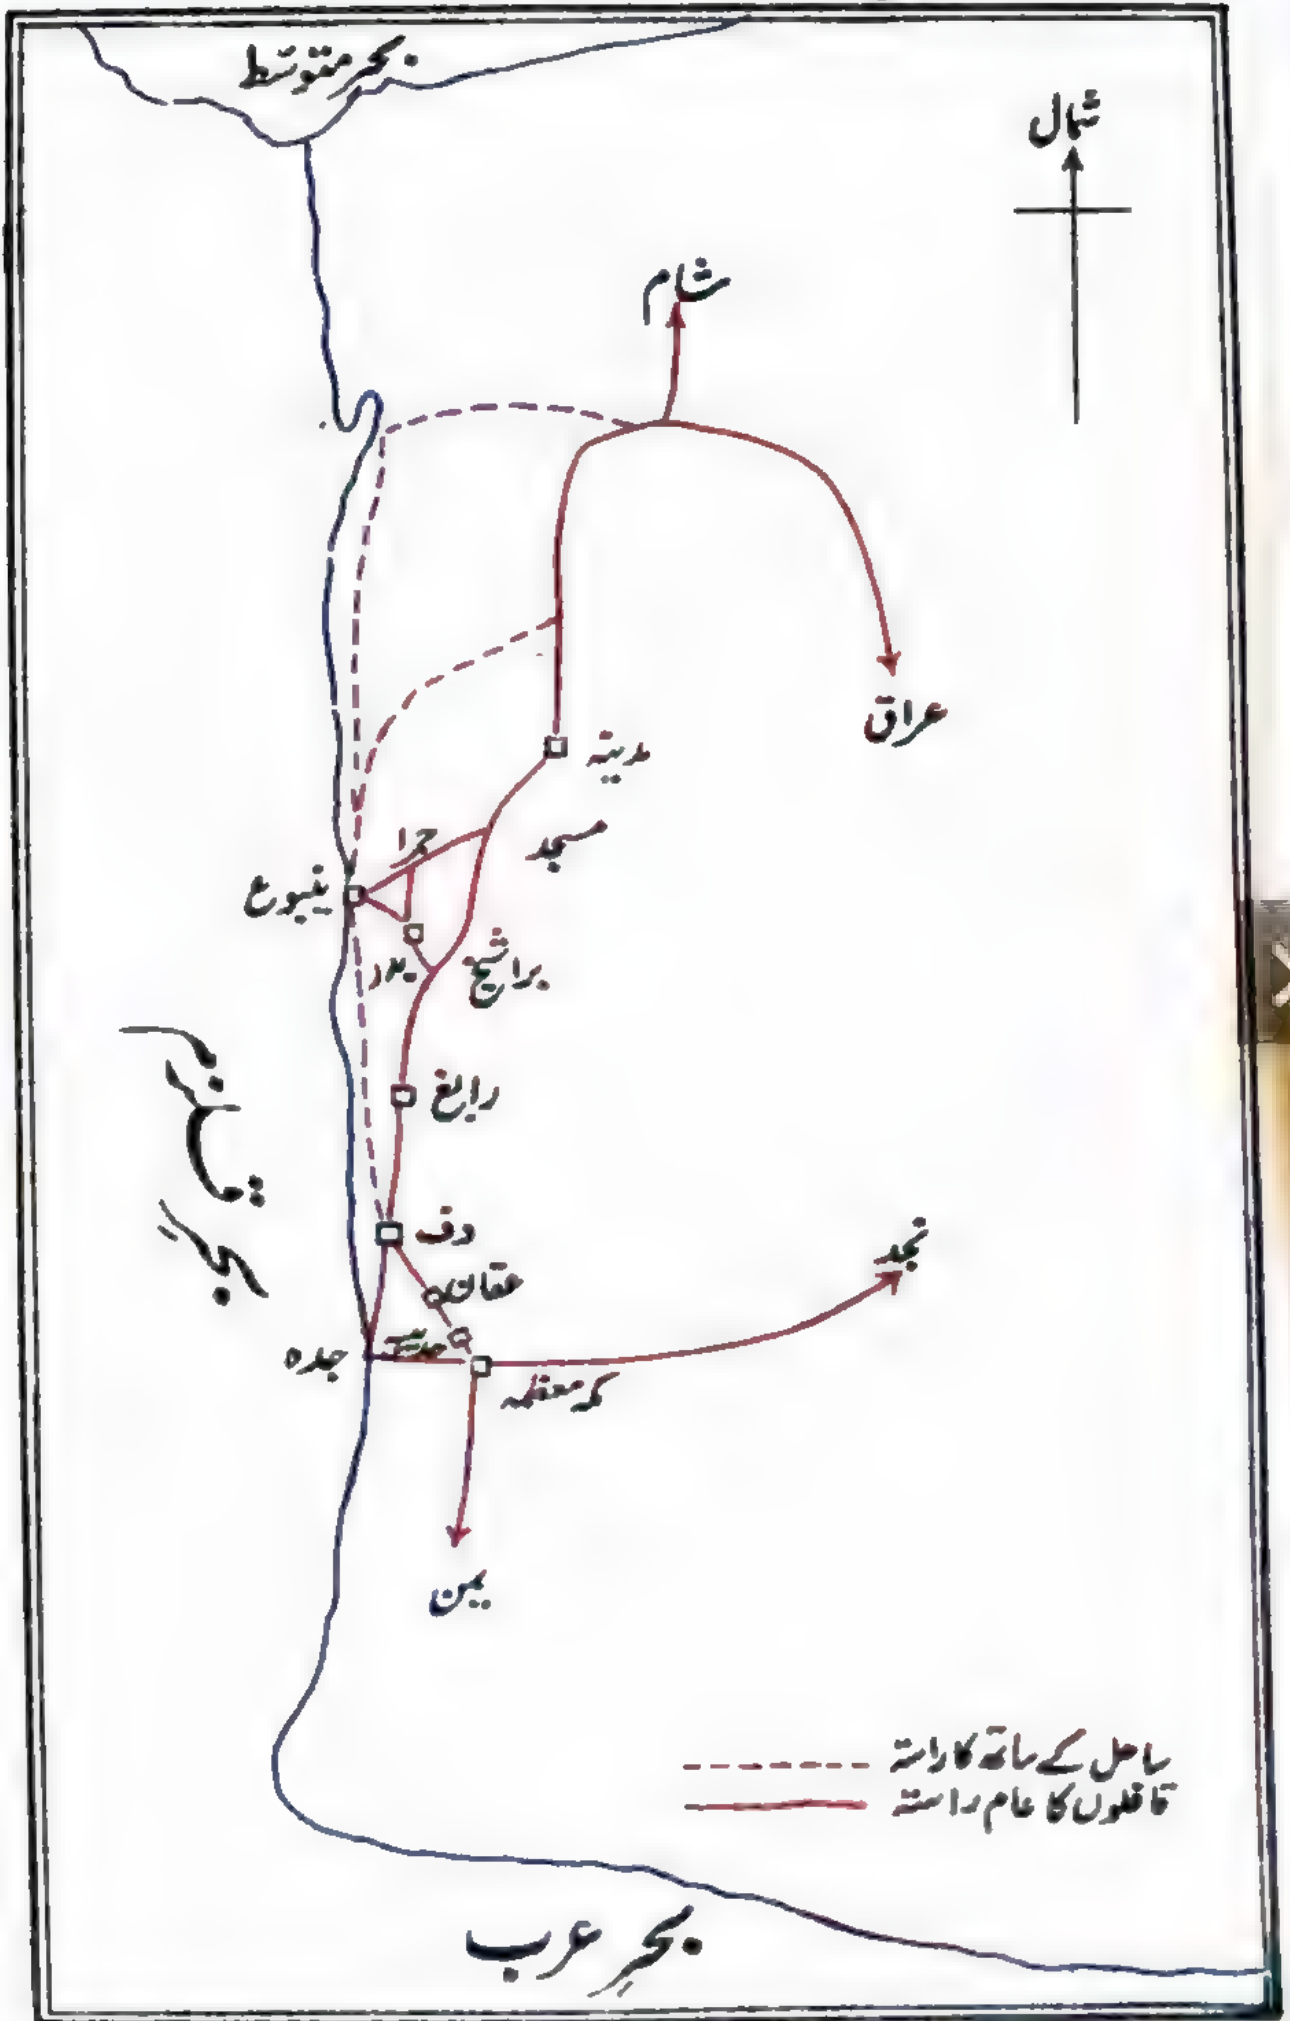 بحرِ متوسط
شمال
شام
عراق
مدینہ
مسجد
حمرا
ینبوع
بدر
براشیخ
رابغ
بحرِ قلزم
دف
عقان
نجد
جدہ
مکہ معظمہ
یمن
ساحل کے ساتھ کا راستہ
قافلوں کا عام راستہ
بحرِ عرب